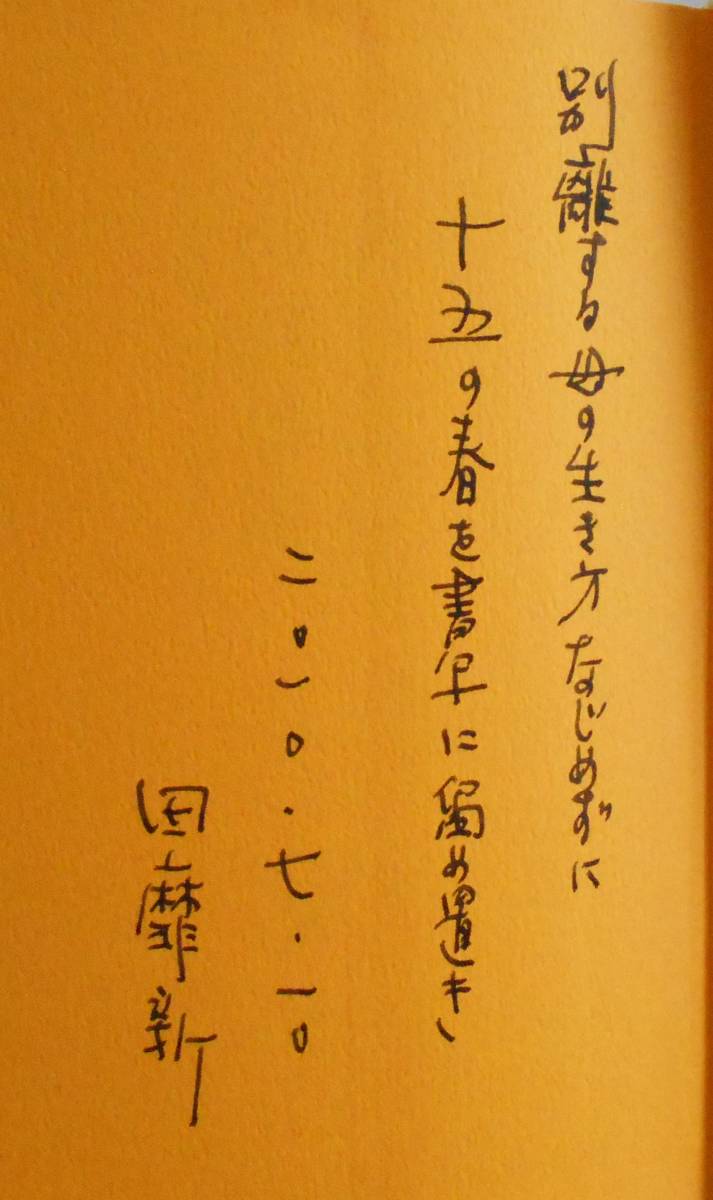 別離する母の生き方なじめずに
十五の春を書架に留め置き
二〇一〇・七・一〇
田靡新